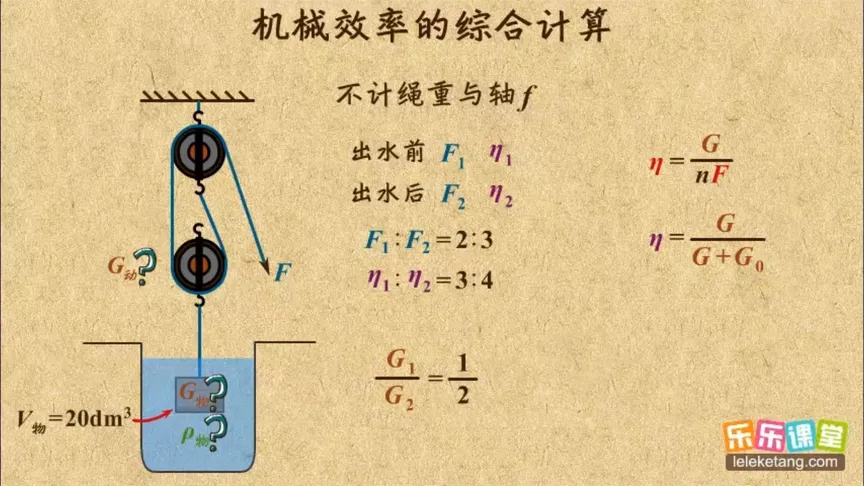 机械效率的综合计算
不计绳重与轴f
出水前 F₁ η₁
出水后 F₂ η₂
F₁:F₂=2:3
η₁:η₂=3:4
G₁/G₂=1/2
η=G/nF
η=G/G+G₀
G动?
F
G物?
ρ物?
V物=20dm³
乐乐课堂
leleketang.com